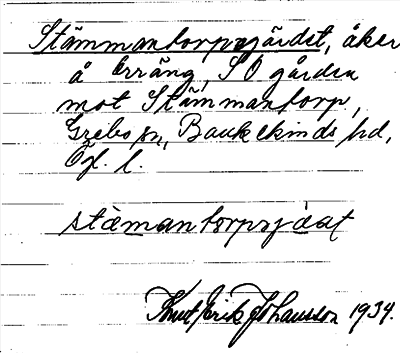 Stämmantorpsgärdet, åker
å Erräng, SO gården
mot Stämmantorp,
Grebo sn, Bankekinds hd,
Ög. l.
stämantårpsjädat
Knut Erik Johansson 1934.